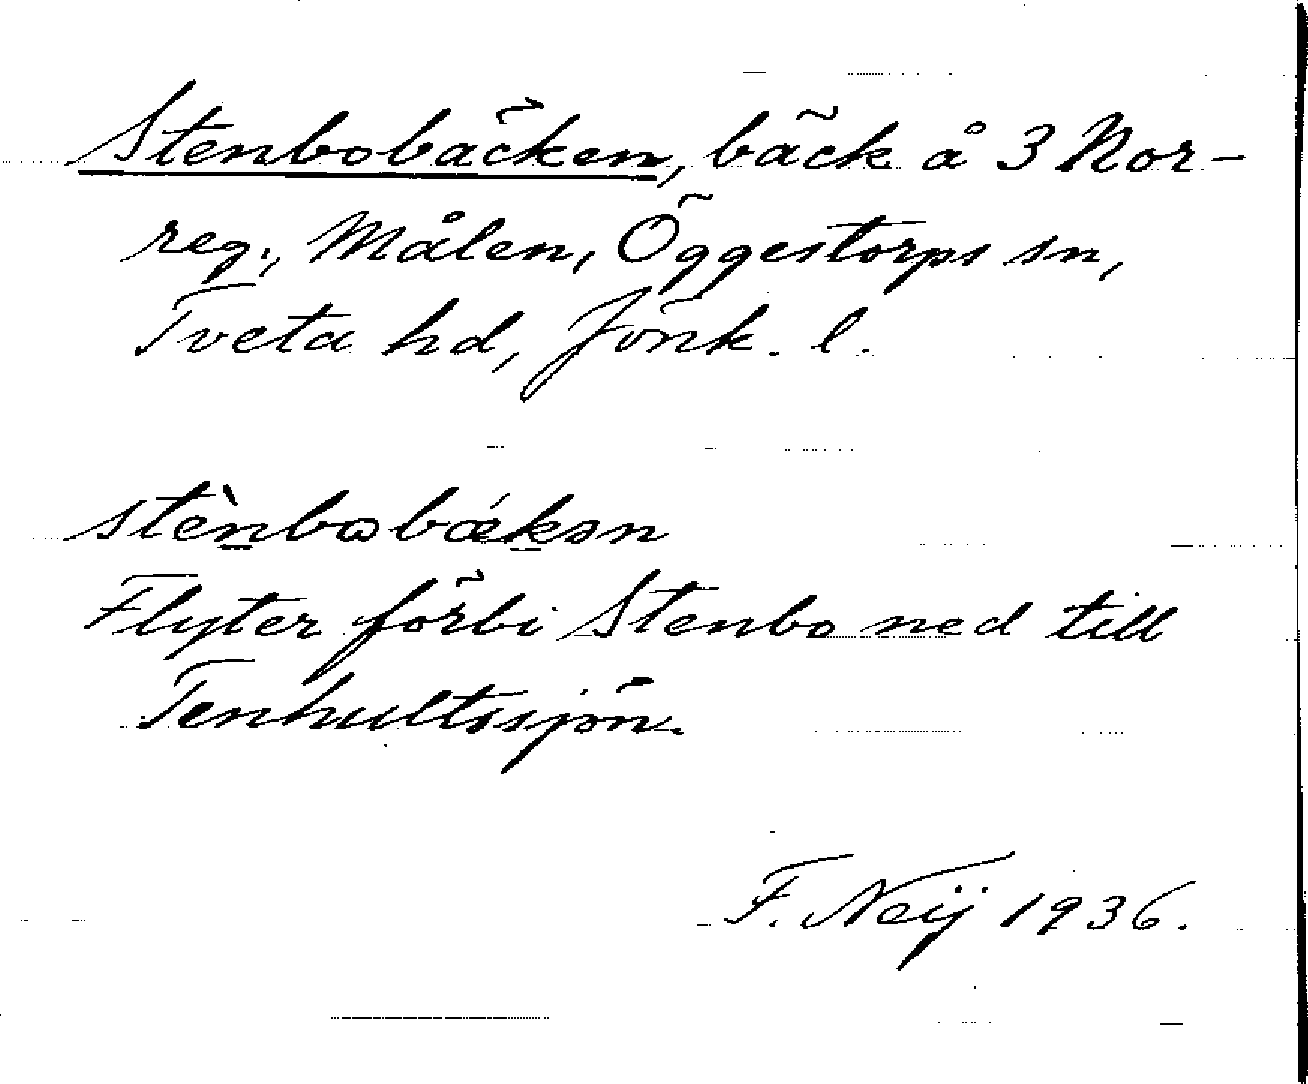 Stenbobäcken, bäck å 3 Nor-
reg., Målen, Öggestorps sn,
Tveta hd, Jönk. l.
stènbɷbǽkən
Flyter förbi Stenbo ned till
Tenhultssjön.
F. Neij 1936.